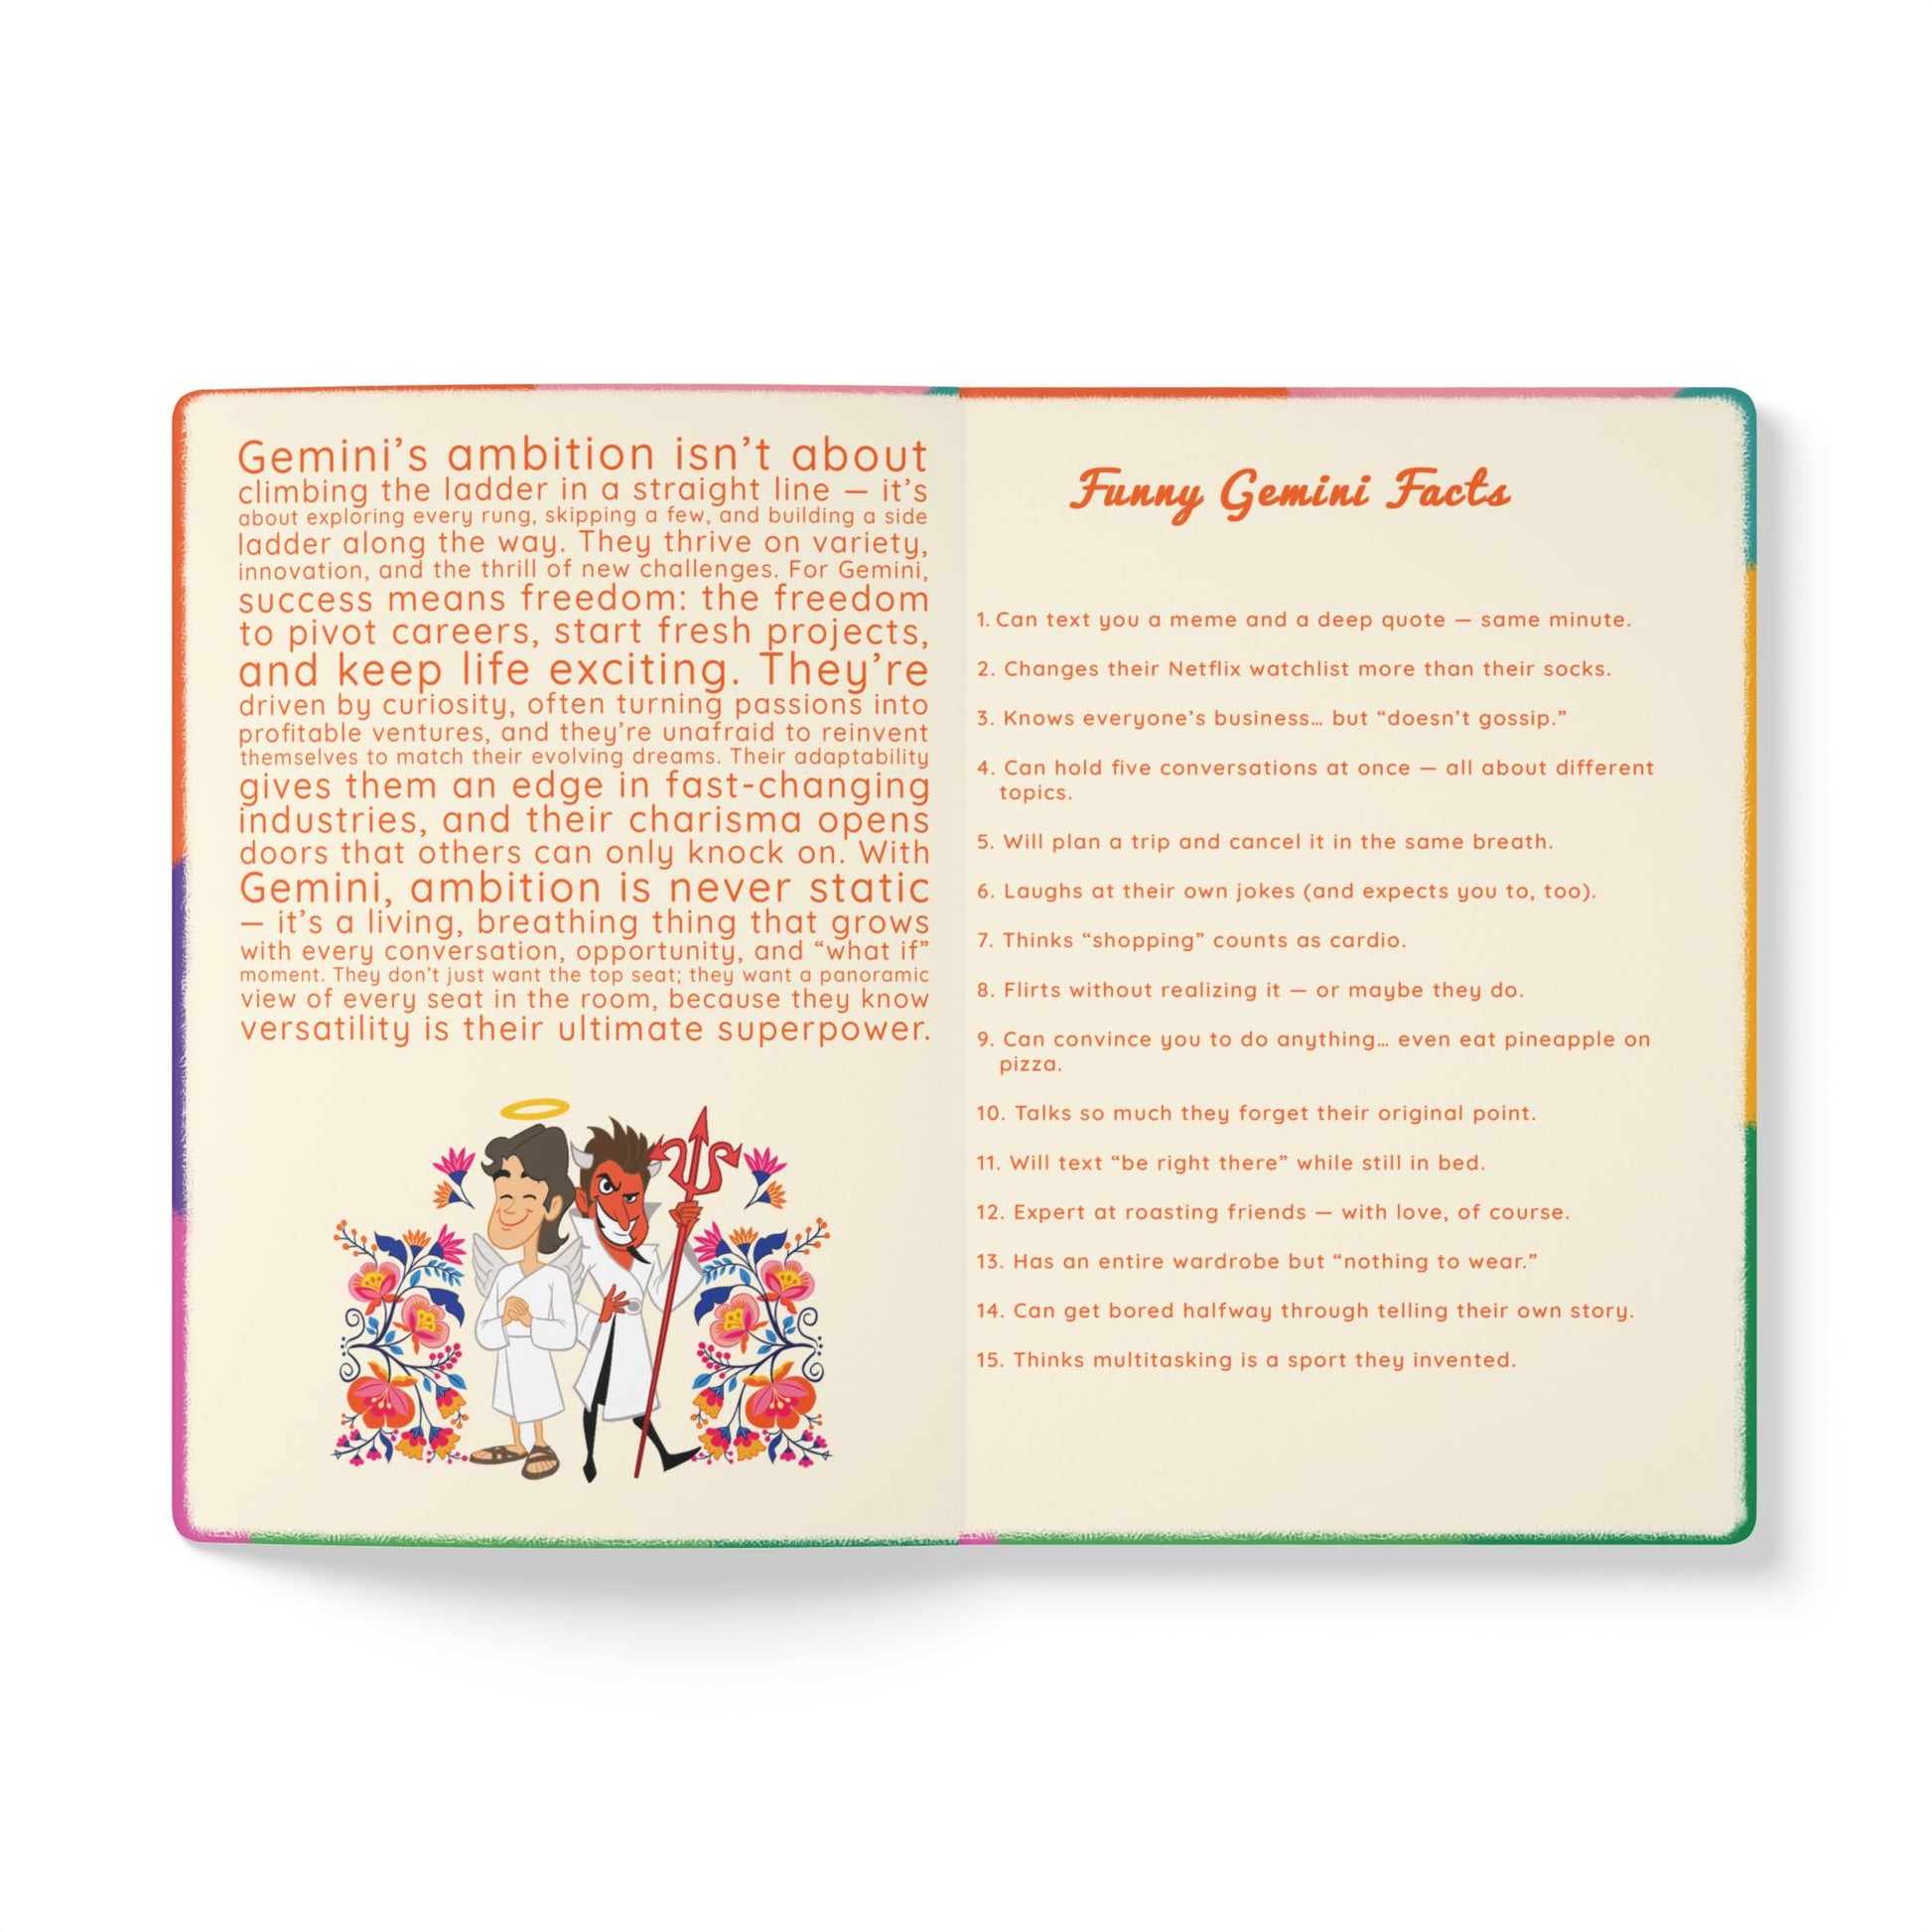 Gemini’s ambition isn’t about
climbing the ladder in a straight line — it’s
about exploring every rung, skipping a few, and building a side
ladder along the way. They thrive on variety,
innovation, and the thrill of new challenges. For Gemini,
success means freedom: the freedom
to pivot careers, start fresh projects,
and keep life exciting. They’re
driven by curiosity, often turning passions into
profitable ventures, and they’re unafraid to reinvent
themselves to match their evolving dreams. Their adaptability
gives them an edge in fast-changing
industries, and their charisma opens
doors that others can only knock on. With
Gemini, ambition is never static
— it’s a living, breathing thing that grows
with every conversation, opportunity, and “what if”
moment. They don’t just want the top seat; they want a panoramic
view of every seat in the room, because they know
versatility is their ultimate superpower.
Funny Gemini Facts
1. Can text you a meme and a deep quote — same minute.
2. Changes their Netflix watchlist more than their socks.
3. Knows everyone’s business… but “doesn’t gossip.”
4. Can hold five conversations at once — all about different
topics.
5. Will plan a trip and cancel it in the same breath.
6. Laughs at their own jokes (and expects you to, too).
7. Thinks “shopping” counts as cardio.
8. Flirts without realizing it — or maybe they do.
9. Can convince you to do anything… even eat pineapple on
pizza.
10. Talks so much they forget their original point.
11. Will text “be right there” while still in bed.
12. Expert at roasting friends — with love, of course.
13. Has an entire wardrobe but “nothing to wear.”
14. Can get bored halfway through telling their own story.
15. Thinks multitasking is a sport they invented.